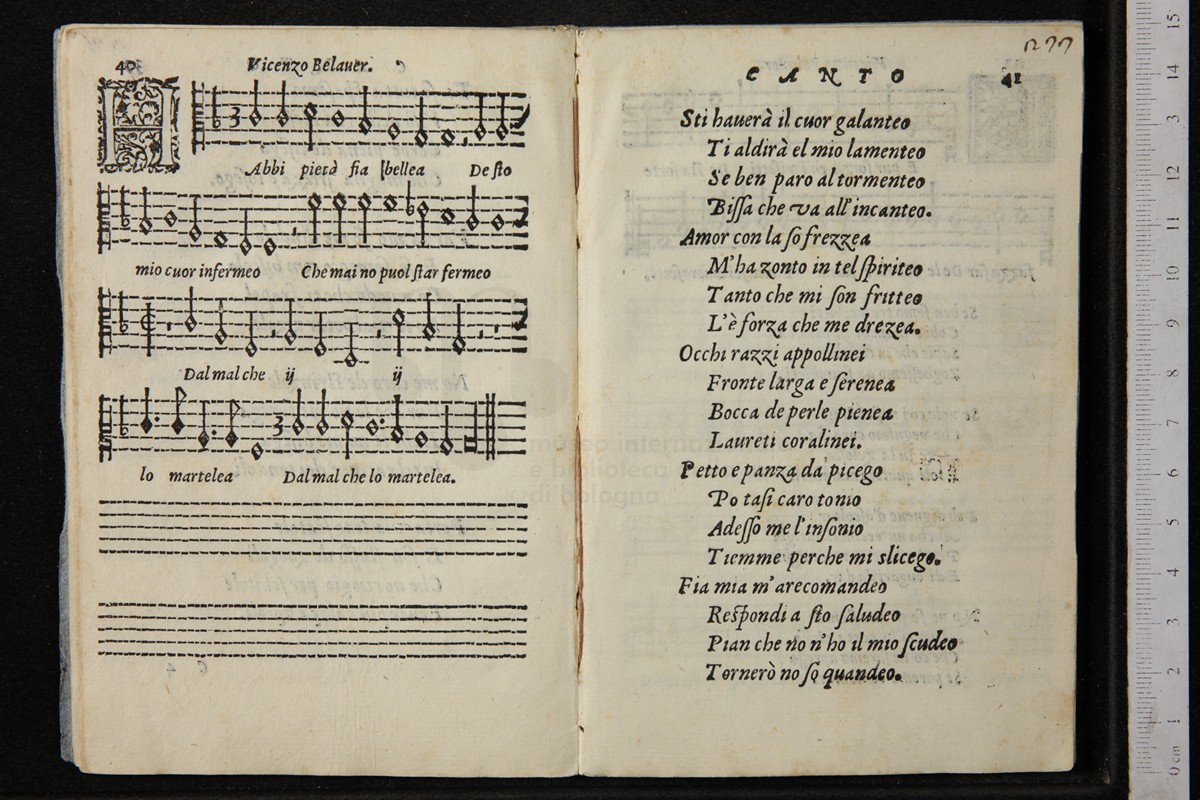 40
Vicenzo Belauer.
3
Abbi pietà fia bellea De sto
mio cuor infermeo Che mai no puol star fermeo
Dal mal che ij ij
3
lo martelea Dal mal che lo martelea.
CANTO
41
Sti hauerà il cuor galanteo
Ti aldirà el mio lamenteo
Se ben paro al tormenteo
Bissa che va all'incanteo.
Amor con la so frezzea
M'ha zonto in tel spiriteo
Tanto che mi son fritteo
L'è forza che me drezea.
Occhi razzi appollinei
Fronte larga e serenea
Bocca de perle pienea
Laureti coralinei.
Petto e panza da picego
Po tasi caro tonio
Adesso me l'insonio
Tiemme perche mi slicego.
Fia mia m'arecomandeo
Respondi a sto saludeo
Pian che no n'ho il mio scudeo
Tornerò no so quandeo.
museo internaz
e biblioteca
di bologna
15
14
13
12
11
10
9
8
7
6
5
4
3
2
1
0 cm